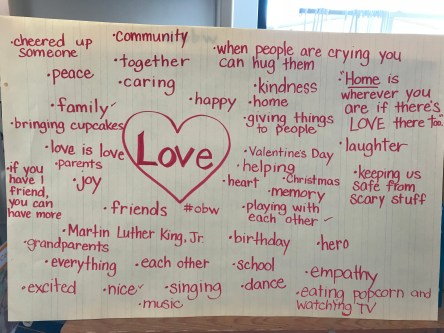 •cheered up
someone
•community
•when people are crying you
can hug them
•together
•peace
•caring
•kindness
•"Home is
wherever you
are if there's
LOVE there too."
•family✓
•happy
•home
•bringing cupcakes
•giving things
to people
Love
•love is love
•Valentine's Day
•laughter
•parents
•helping
•if you
have 1
friend,
you can
have more
•joy
•heart
•Christmas
•keeping us
safe from
scary stuff
•memory
•friends
#obw
•playing with
each other ✓
•Martin Luther King, Jr.
•birthday
•hero
•grandparents
•everything
•each other
•school
•empathy
•excited
•nice✓
•singing
•dance
•eating popcorn and
watching TV
•music